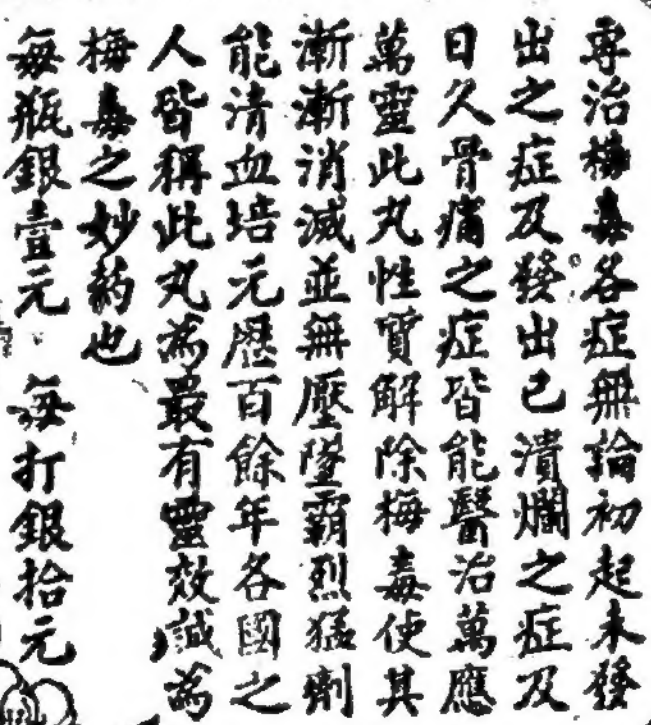 專治梅毒各症無論初起未發
出之症及發出已潰爛之症及
日久骨痛之症皆能醫治萬應
萬靈此丸性質解除梅毒使其
漸漸消滅並無壓墜霸烈猛劑
能清血培元歷百餘年各國之
人皆稱此丸為最有靈效誠為
梅毒之妙药也
每瓶銀壹元 每打銀拾元